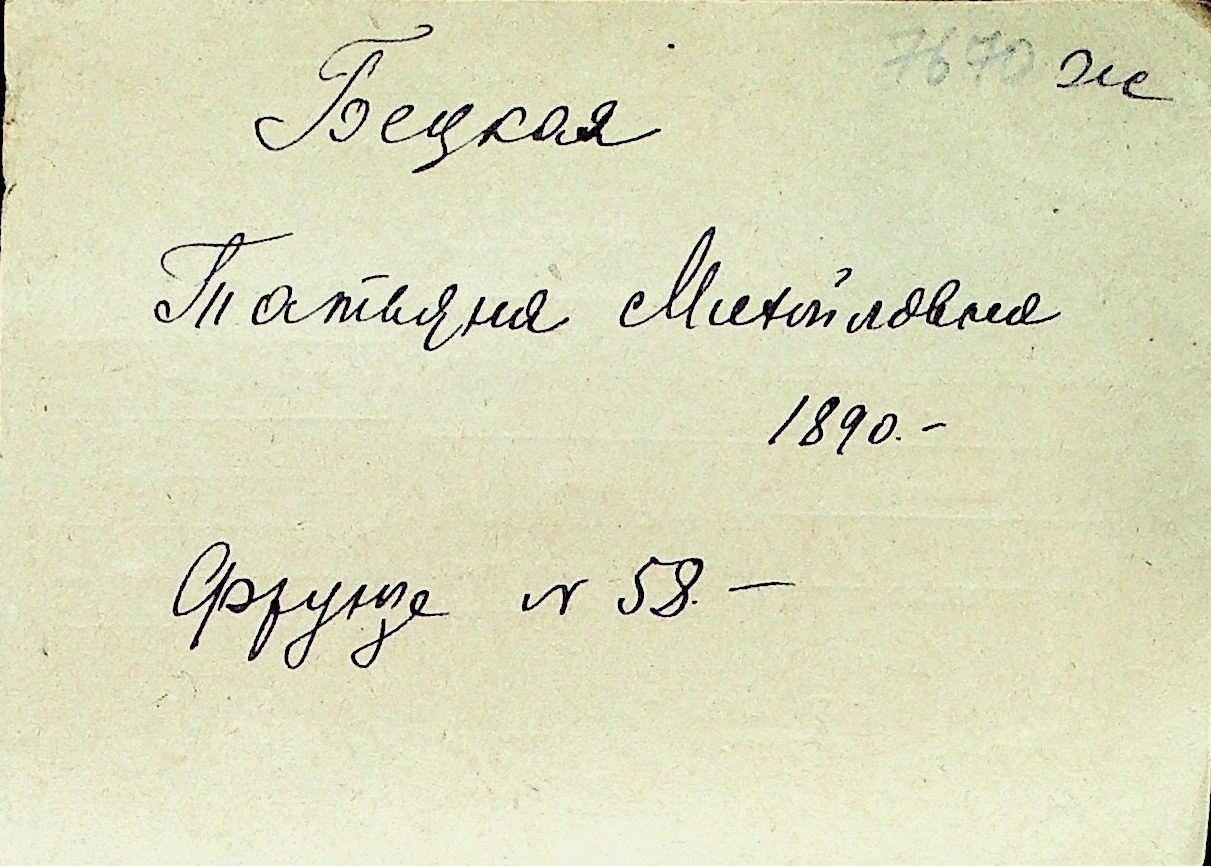 7670 Же
Бецкая
Татьяна Михайловна
1890.-
Фрунзе N 58.-